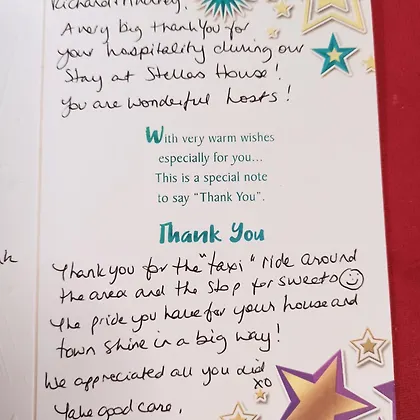 Richard & Audrey,
A very big thank you for
your hospitality during our
Stay at Stellas House!
You are wonderful hosts!
With very warm wishes
especially for you...
This is a special note
to say "Thank You".
Thank You
Thank you for the "taxi" ride around
the area and the stop for sweets
The pride you have for your house and
town shine in a big way!
We appreciated all you did
xo
Take good care,